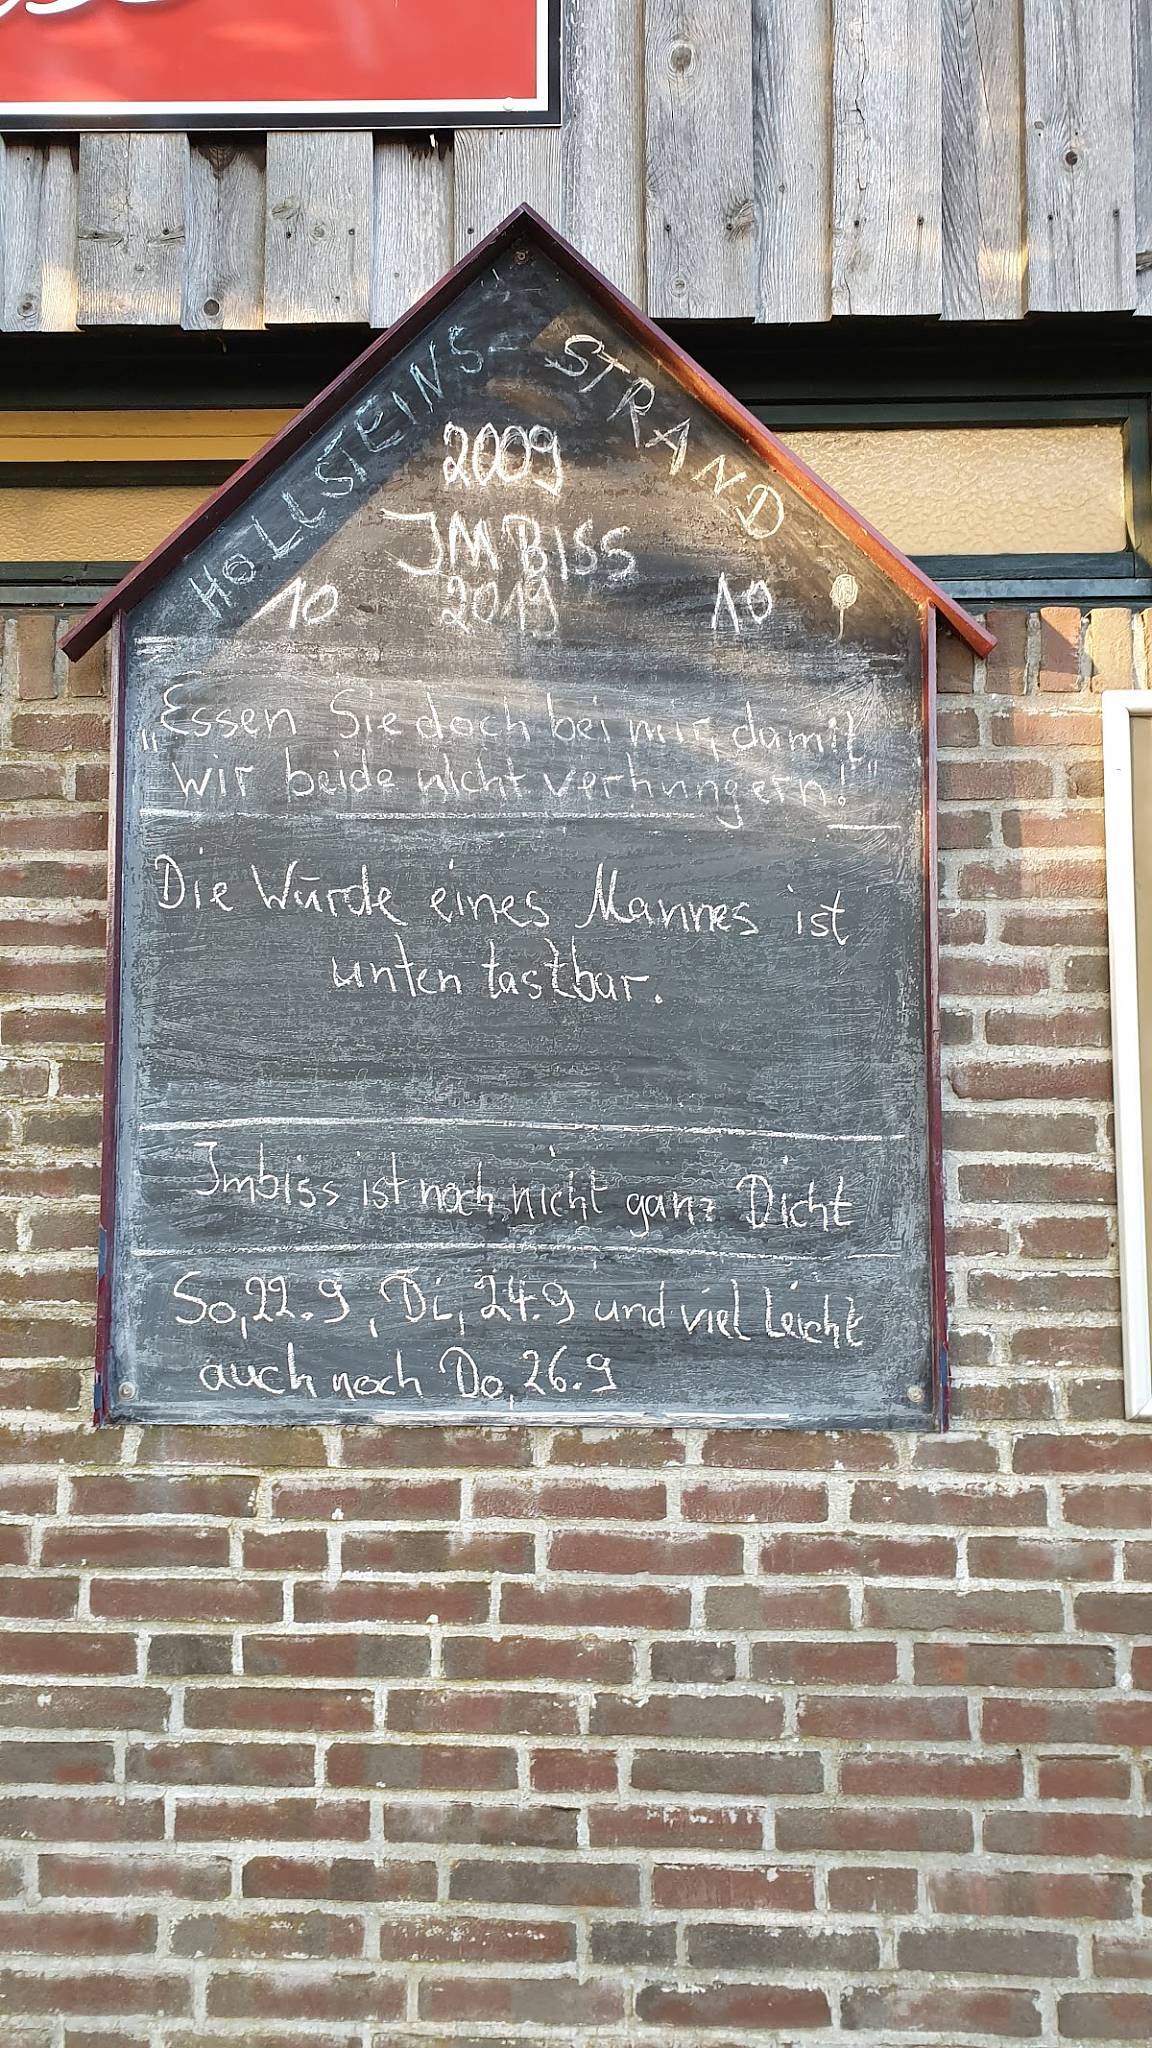 HOLLSTEINS- STRAND
2009
IMBISS
10 2019 10
„Essen Sie doch bei mir, damit
wir beide nicht verhungern!"
Die Würde eines Mannes ist
unten tastbar.
Imbiss ist noch nicht ganz Dicht
So, 22.9, Di, 24.9 und viel Leicht
auch noch Do, 26.9